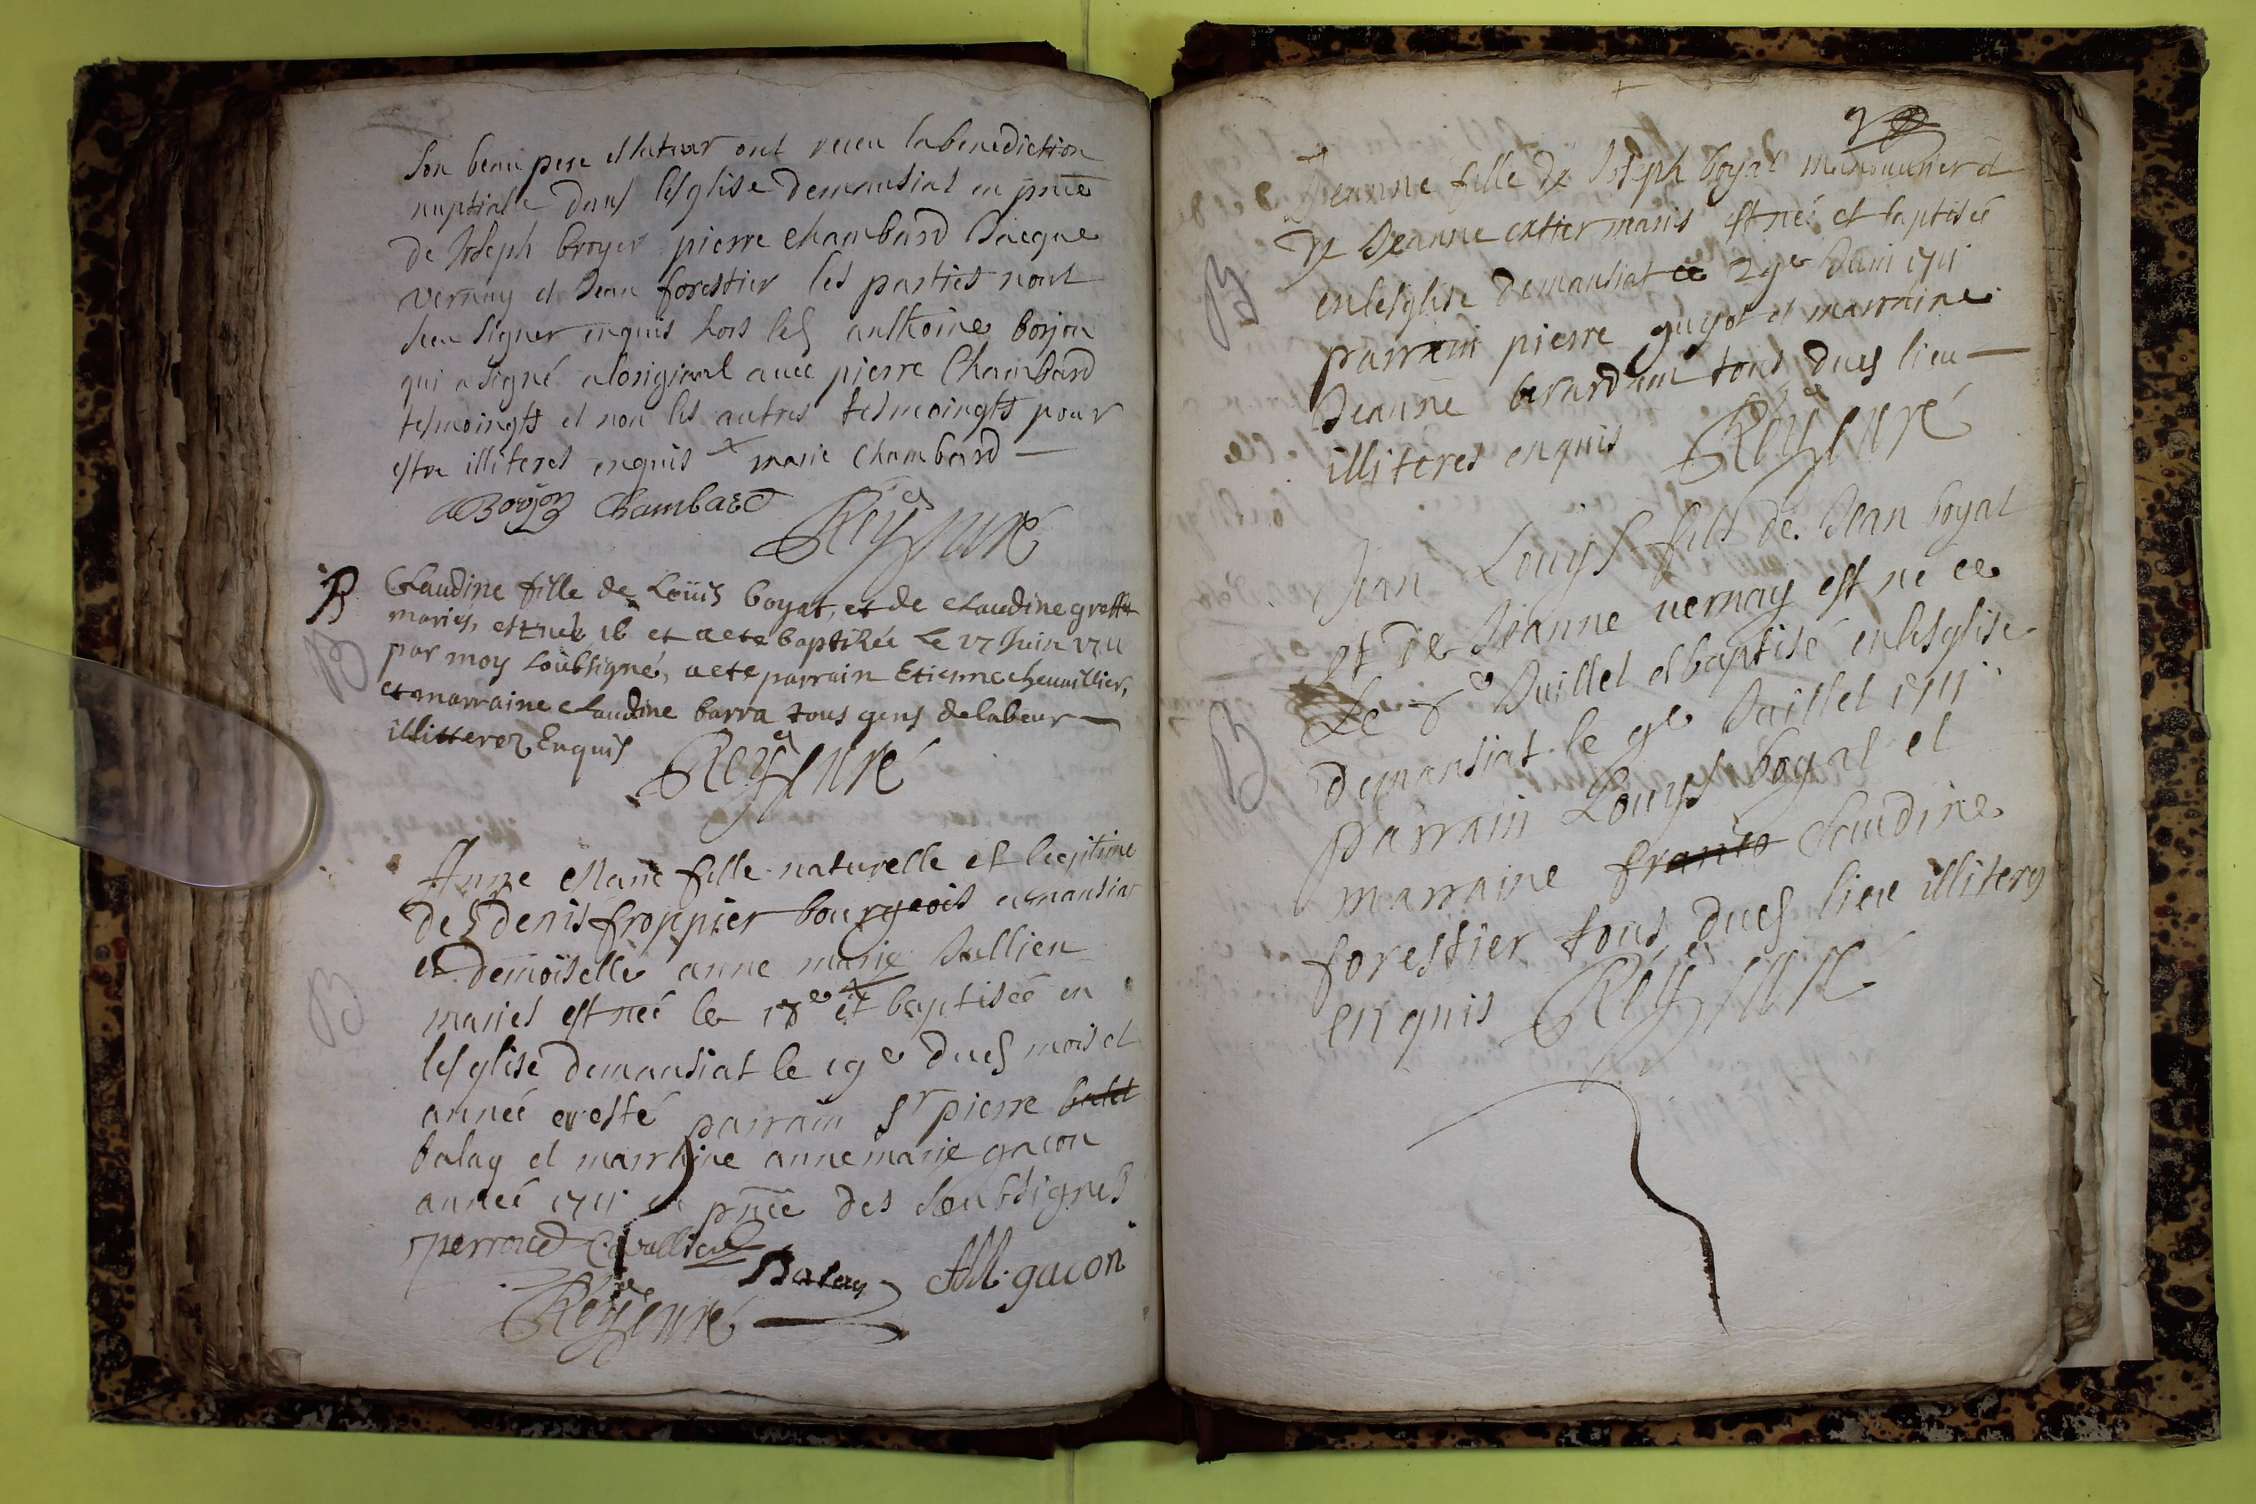 son beau pere et tuteur ont receu la benediction
nuptiale dans lesglise demansiat en pnce
de Joseph broyer pierre Chambard Jacque
vernay et Jean forestier les parties nont
sceu signer enquis hors led anthoine borjon
qui a signé a loriginal avec pierre Chambard
tesmoingts et non les autres tesmoingts pour
estre illiteres enquis + marie Chambard
A Borjon Chambard
Rey curé
B Claudine fille de Loüis boyat, et de Claudine greffet
mariés, est née et a eté baptisée le 17 Juin 1711
par moy soubsigné, a eté parrain Etienne chevaillier,
et marraine Claudine barra tous gens de labeur
illitterez Enquis
Rey curé
B
Anne Marie fille naturelle et legitime
de Sr denis froppier bourgeois a mansiat
et demoiselle anne marie Jullien
maries est née le 18e et baptisée en
lesglise demansiat le 19e dud mois et
année et esté parrain Sr pierre
balay et marraine anne marie gacon
année 1711 en pnce des soubsignes
perroud Cavallier
Balay AM. gacon
B
Rey curé
Jeanne fille de Joseph boyat manouvrier et
de Jeanne cattier maris est née et baptisée
en lesglise demansiat ce 29e Juin 1711
parrain pierre guyot et marraine
Jeanne berardan tous dud lieu
illiteres enquis Rey curé
B
Jean Louys fils de Jean boyat
et de Jeanne vernay est né ce
Le 8e Juillet et baptisé en lesglise
demansiat le 9e Juillet 1711
parrain Louys boyat et
marraine franco Claudine
forestier tous dud lieu illiteres
enquis Rey curé
B